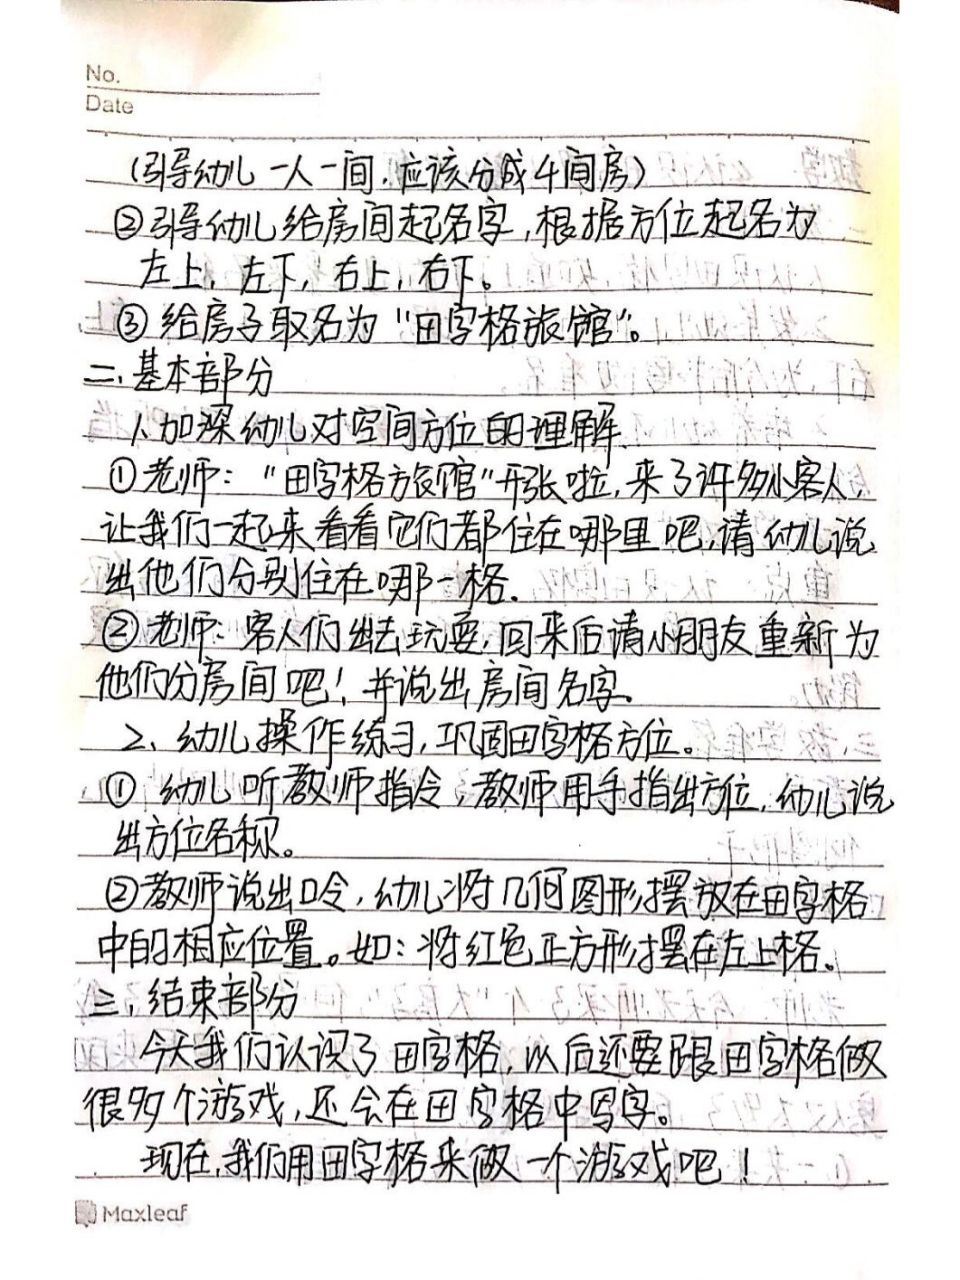 No.
Date
(引导幼儿一人一间,应该分成4间房)
②引导幼儿给房间起名字,根据方位起名为
左上,左下,右上,右下。
③给房子取名为“田字格旅馆”。
二、基本部分
1、加深幼儿对空间方位的理解.
①老师:“田字格旅馆”开张啦,来了许多小客人,
让我们一起来看看它们都住在哪里吧,请幼儿说
出他们分别住在哪一格.
②老师:客人们出去玩耍,回来后请小朋友重新为
他们分房间吧!并说出房间名字.
2、幼儿操作练习,巩固田字格方位。
①幼儿听教师指令,教师用手指出方位,幼儿说
出方位名称。
②教师说出口令,幼儿将几何图形摆放在田字格
中的相应位置。如:将红色正方形摆在左上格。
三、结束部分
今天我们认识了田字格,以后还要跟田字格做
很多个游戏,还会在田字格中写字。
现在,我们用田字格来做一个游戏吧!
Maxleaf